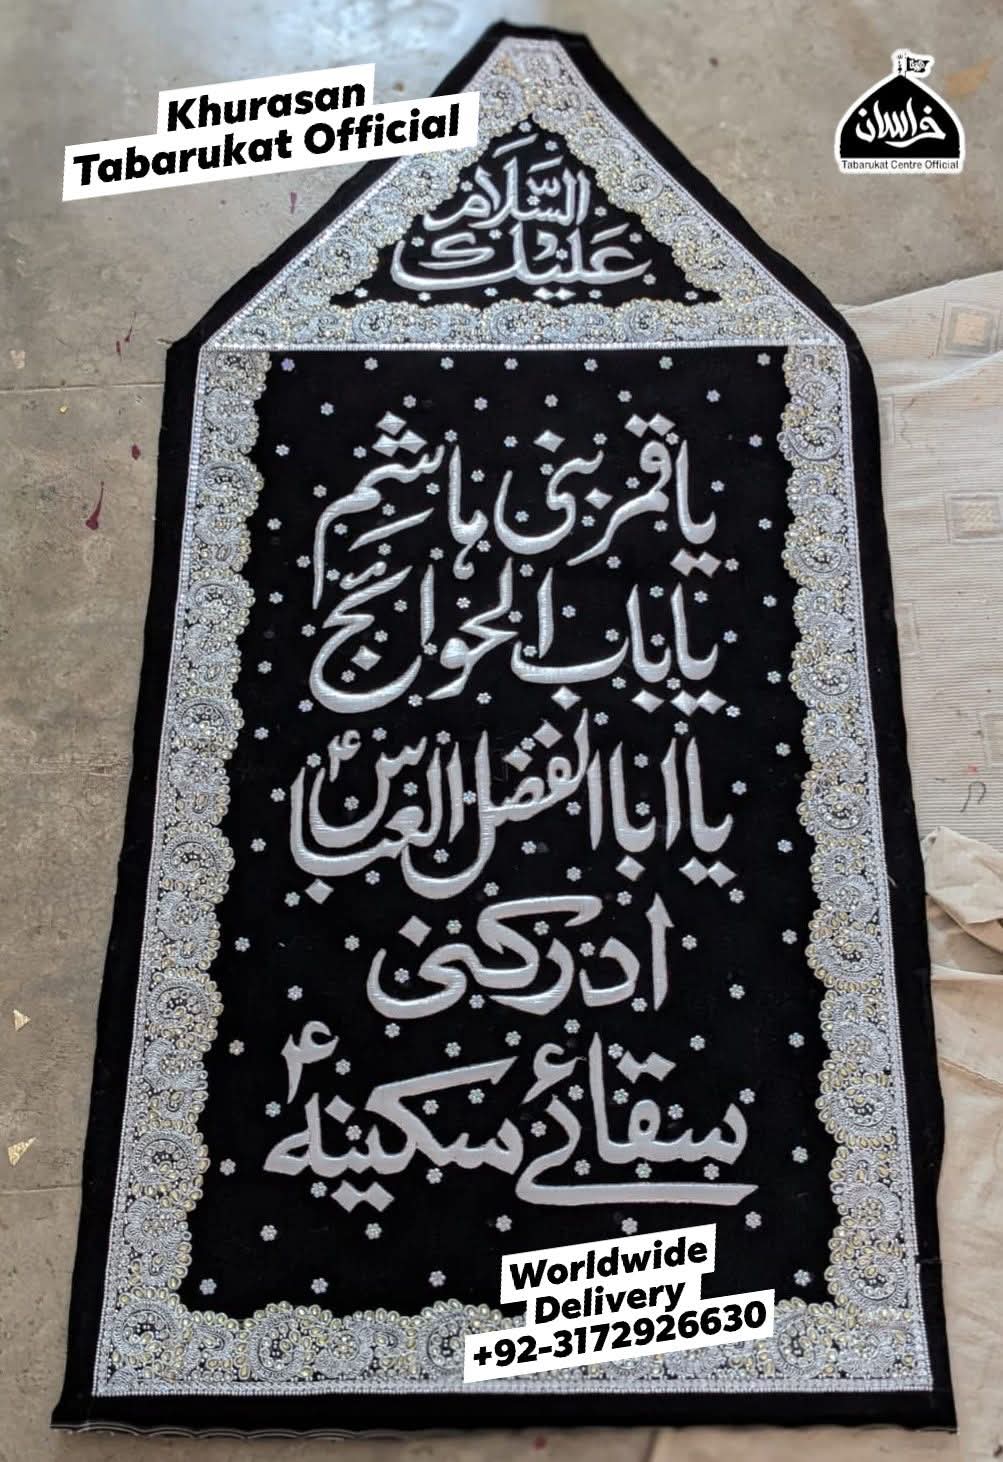 Khurasan
Tabarukat Official
خراسان
Tabarukat Centre Official
السَّلَام
عَلَیْك
یا قمر بنی ہاشم
یا باب الحوائج
یا ابا الفضل العباسؑ
ادرکنی
سقائے سکینہؑ
Worldwide
Delivery
+92-3172926630